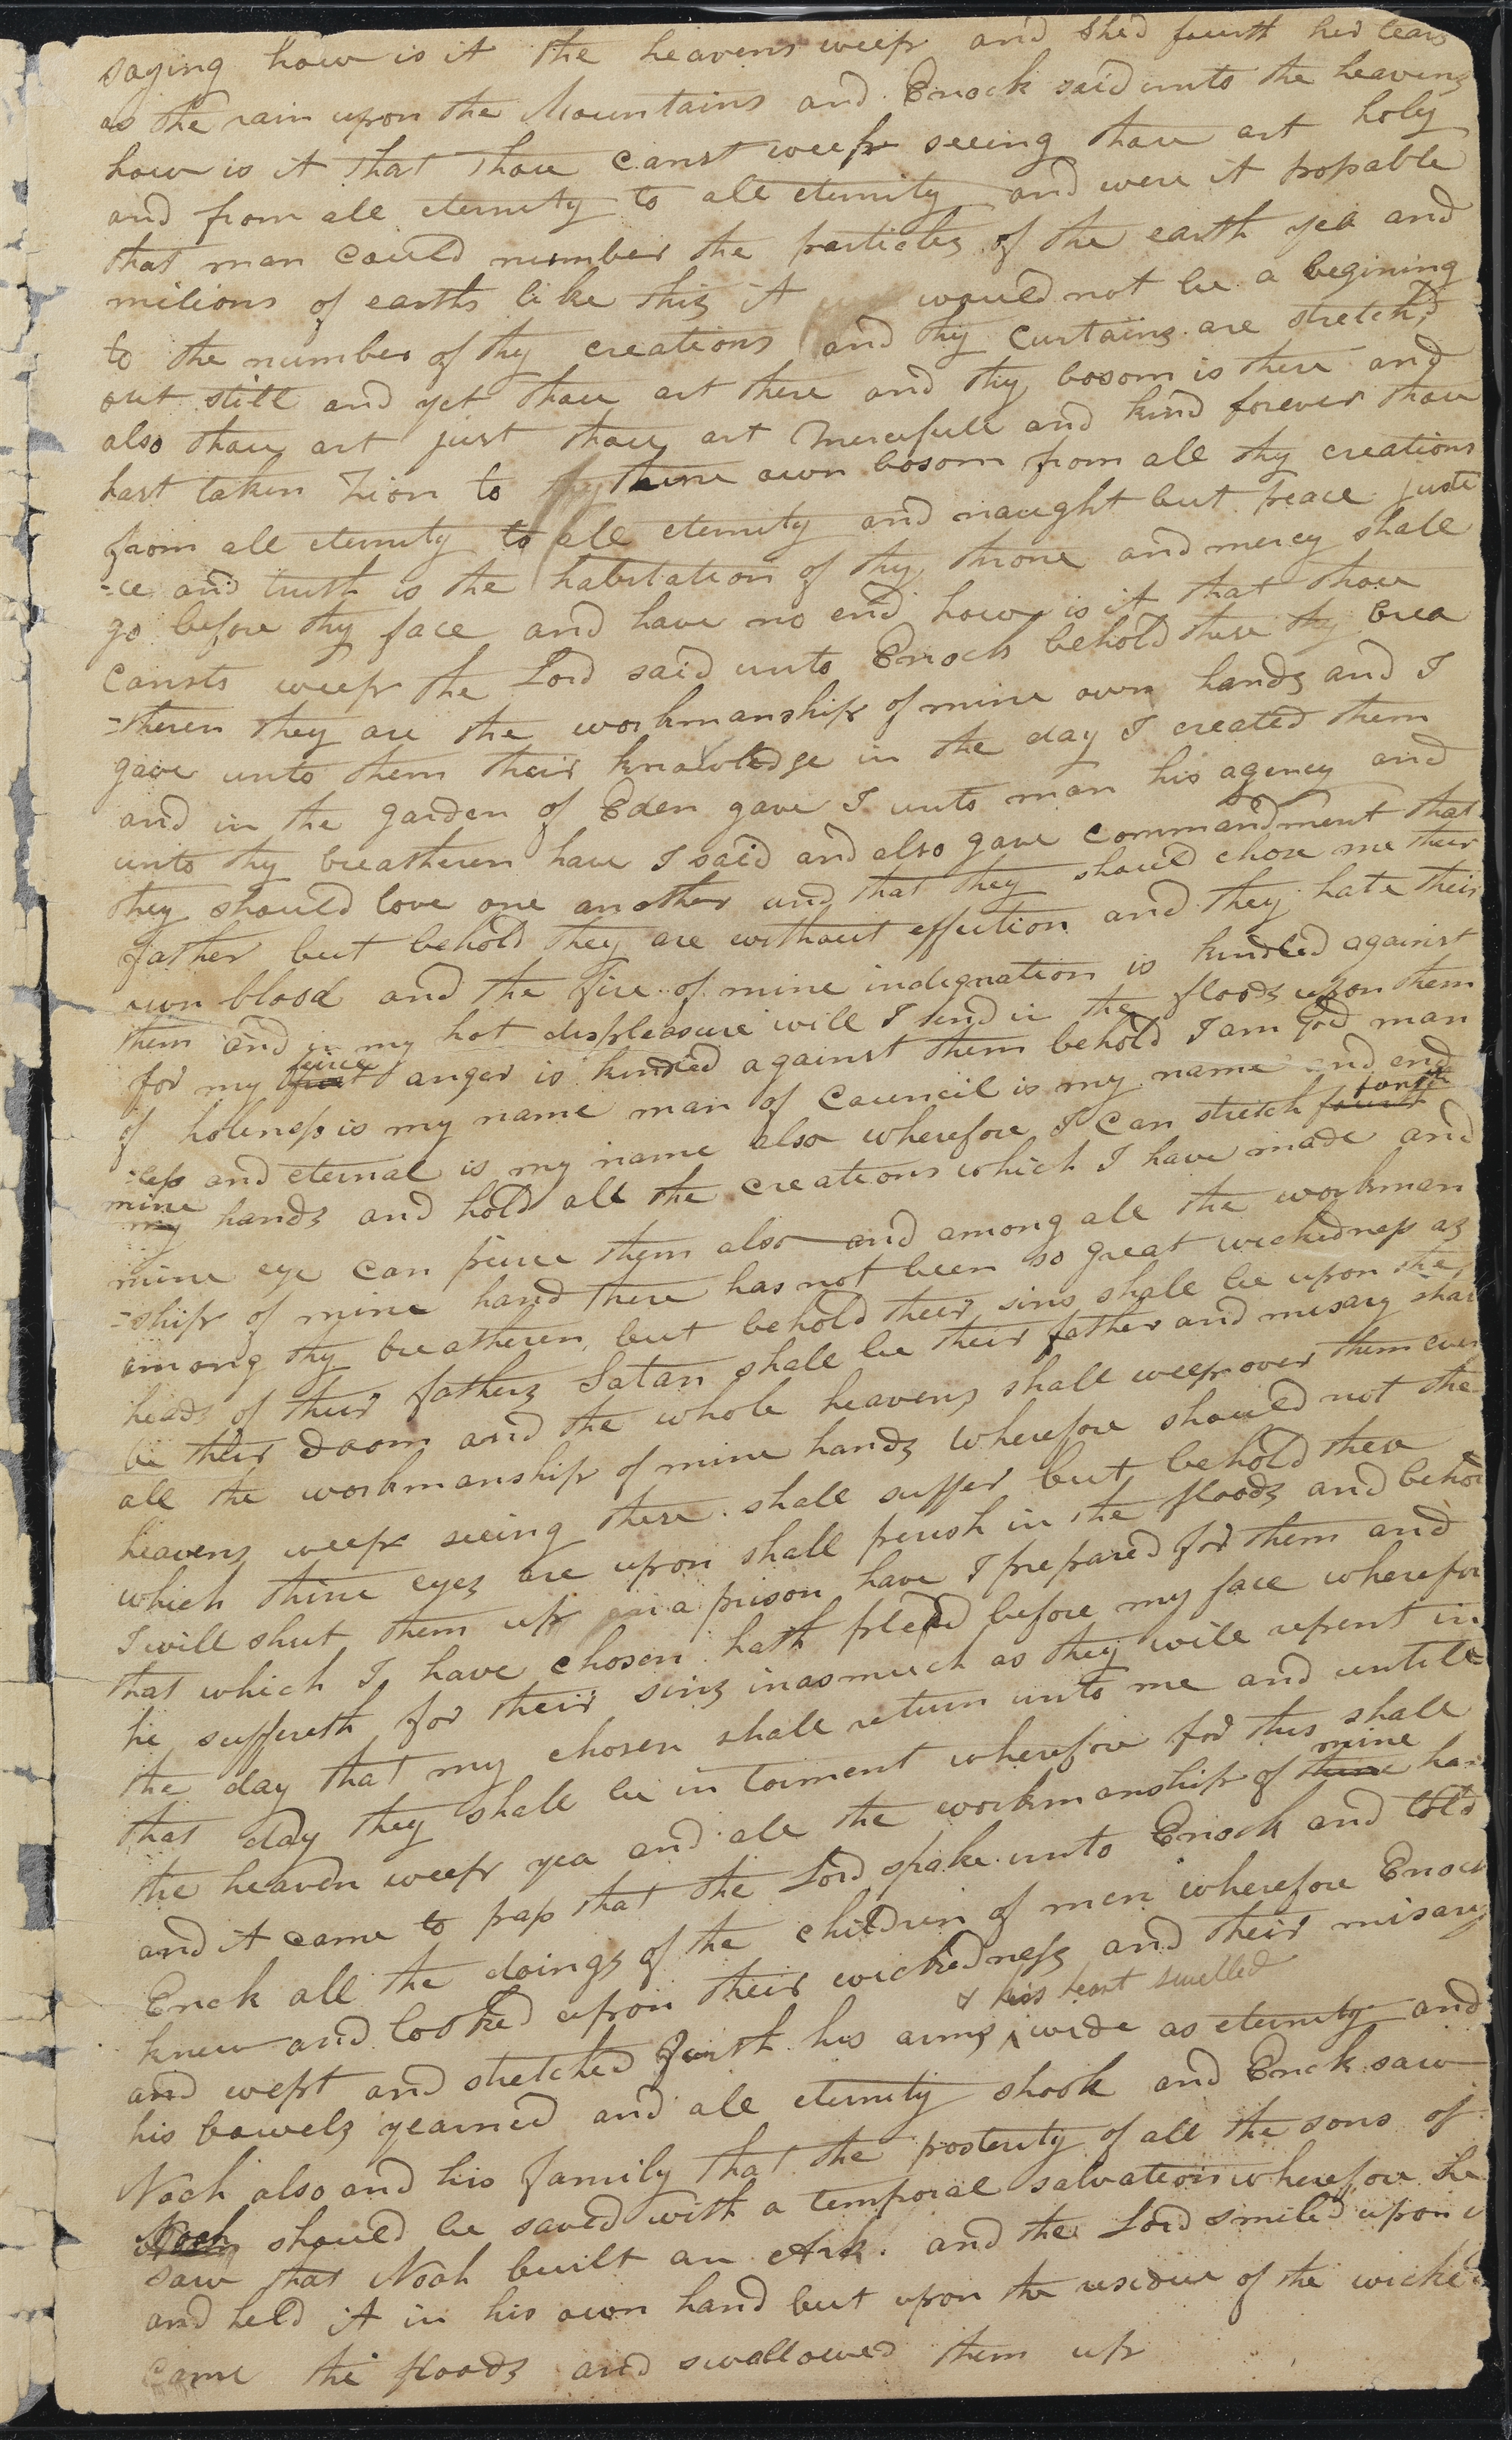 saying how is it the heavens weep and shed fourth her tears
as the rain upon the Mountains and Enock said unto the heavens
how is it that thou canst weep seeing thou art holy
and from all eternity to all eternity and were it possable
that man could number the particles of the earth yea and
milions of earths like this it would not be a begining
to the number of thy creations and thy curtains are stretch,d
out still and yet thou art there and thy bosom is there and
also thou art just thou art mercifull and kind forever thou
hast taken Zion to thy thine own bosom from all thy creations
from all eternity to all eternity and naught but peace justi
-ce and truth is the habitation of thy throne and mercy shall
go before thy face and have no end how is it that thou
cansts weep the Lord said unto Enoch behold these thy brea
-theren they are the workmanship of mine own hands and I
gave unto them their knowledge in the day I created them
and in the garden of Eden gave I unto man his agency and
unto thy breatheren have I said and also gave commandment that
they should love one another and that they should chose me their
father but behold they are without affection and they hate their
own blood and the Fire of mine indignation is kindled against
them and in my hot displeasure will I send in the floods upon them
for my firce anger is kindled against them behold I am God man
of holiness is my name man of Council is my name and end
-less and eternal is my name also wherefore I can stretch fourth forth
mine my hands and hold all the creations which I have made and
mine eye can pierce them also and among all the workman
-ship of mine hand there has not been so great wickedness as
among thy breatheren but behold their sins shall be upon the
heads of their fathers Satan shall be their father and misary shal
be their doom and the whole heavens shall weep over them even
all the workmanship of mine hands wherefore should not the
heavens weep seeing these shall suffer but behold these
which thine eyes are upon shall perish in the floods and behol
I will shut them up a prison have I prepared for them and
that which I have chosen hath plead before my face wherefor
he suffereth for their sins inasmuch as they will repent in
the day that my chosen shall return unto me and untill
that day they shall be in torment wherefore for this shall
the heaven weep yea and all the workmanship of thine mine han
and it came to pass that the Lord spake unto Enock and told
Enck all the doings of the children of men wherefore Enoch
knew and looked upon their wickedness and their misary
and wept and stretched forth his arms & his heart swelled wide as eternity and
his bowels yearned and all eternity shook and Enck saw
Noah also and his family that the posterity of all the sons of
Noah should be saved with a temporal salvation wherefore he
saw that Noah built an Ark and the Lord smiled upon i
and held it in his own hand but upon the residue of the wicked
came the floods and swallowed them up